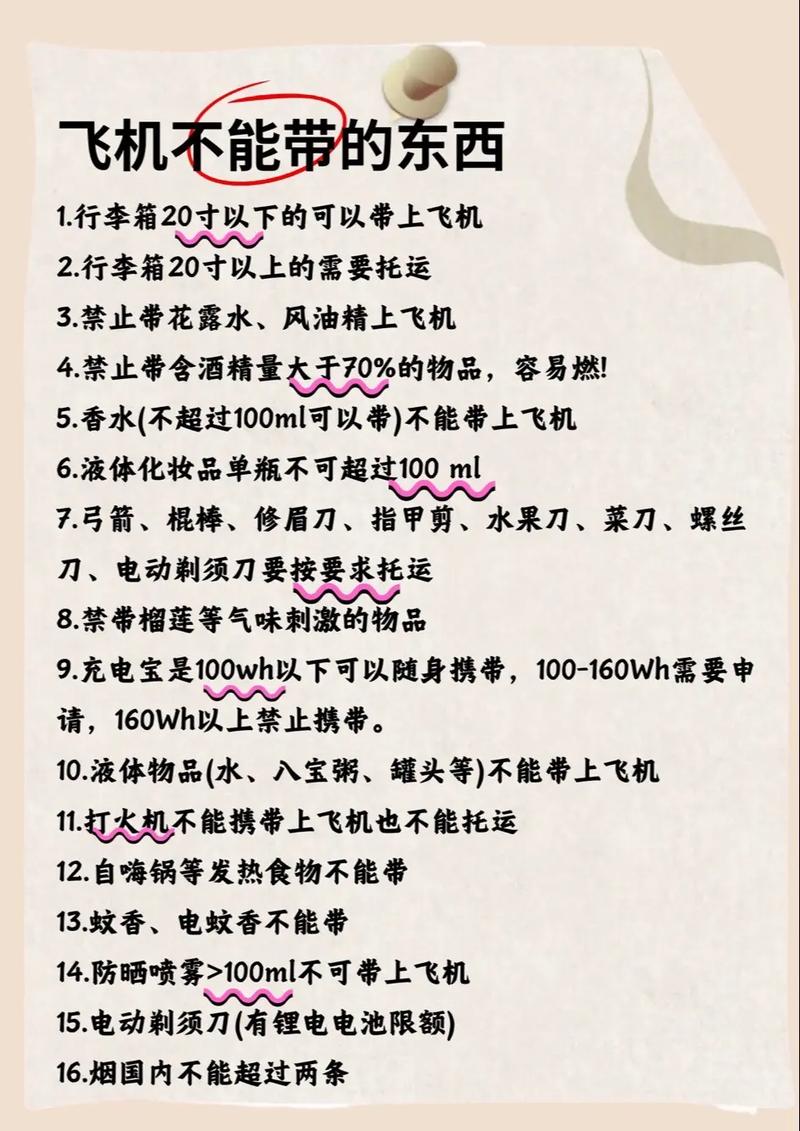 飞机不能带的东西
1.行李箱20寸以下的可以带上飞机
2.行李箱20寸以上的需要托运
3.禁止带花露水、风油精上飞机
4.禁止带含酒精量大于70%的物品，容易燃!
5.香水(不超过100ml可以带)不能带上飞机
6.液体化妆品单瓶不可超过100 ml
7.弓箭、棍棒、修眉刀、指甲剪、水果刀、菜刀、螺丝
刀、电动剃须刀要按要求托运
8.禁带榴莲等气味刺激的物品
9.充电宝是100wh以下可以随身携带，100-160Wh需要申
请，160Wh以上禁止携带。
10.液体物品(水、八宝粥、罐头等)不能带上飞机
11.打火机不能携带上飞机也不能托运
12.自嗨锅等发热食物不能带
13.蚊香、电蚊香不能带
14.防晒喷雾>100ml不可带上飞机
15.电动剃须刀(有锂电电池限额)
16.烟国内不能超过两条